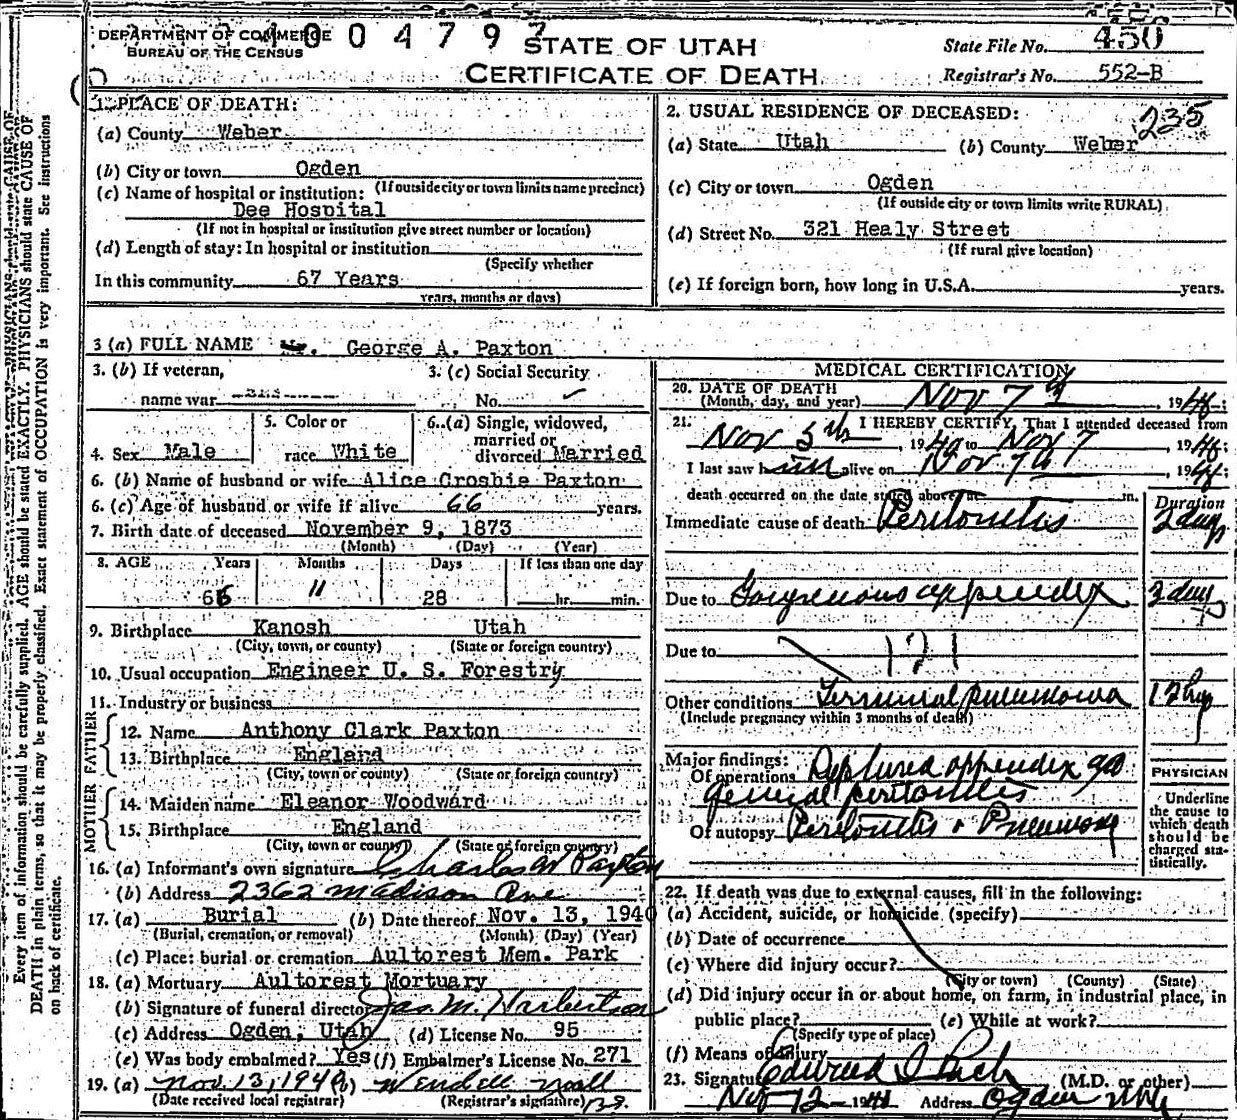 DEPARTMENT OF COMMERCE
BUREAU OF THE CENSUS
100479
STATE OF UTAH
CERTIFICATE OF DEATH
State File No. 450
Registrar's No. 552-B
235
Every item of information should be carefully supplied. AGE should be stated EXACTLY. PHYSICIANS should state CAUSE OF
DEATH in plain terms, so that it may be properly classified. Exact statement of OCCUPATION is very important. See instructions
on back of certificate.
1. PLACE OF DEATH:
(a) County Weber
(b) City or town Ogden
(If outside city or town limits name precinct)
(c) Name of hospital or institution:
Dee Hospital
(If not in hospital or institution give street number or location)
(d) Length of stay: In hospital or institution
(Specify whether
In this community 67 Years
years, months or days)
2. USUAL RESIDENCE OF DECEASED:
(a) State Utah (b) County Weber
(c) City or town Ogden
(If outside city or town limits write RURAL)
(d) Street No. 321 Healy Street
(If rural give location)
(e) If foreign born, how long in U.S.A. years.
3 (a) FULL NAME Mr. George A. Paxton
3. (b) If veteran,
name war
3. (c) Social Security
No.
4. Sex Male
5. Color or
race White
6. (a) Single, widowed,
married or
divorced Married
6. (b) Name of husband or wife Alice Crosbie Paxton
6. (c) Age of husband or wife if alive 66 years.
7. Birth date of deceased November 9, 1873
(Month) (Day) (Year)
8. AGE Years Months Days If less than one day
66 11 28 hr. min.
9. Birthplace Kanosh Utah
(City, town, or county) (State or foreign country)
10. Usual occupation Engineer U. S. Forestry
11. Industry or business
FATHER
12. Name Anthony Clark Paxton
13. Birthplace England
(City, town or county) (State or foreign country)
MOTHER
14. Maiden name Eleanor Woodward
15. Birthplace England
(City, town or county) (State or foreign country)
16. (a) Informant's own signature Charles W Paxton
(b) Address 2362 Madison Ave
17. (a) Burial (b) Date thereof Nov. 13, 1940
(Burial, cremation, or removal) (Month) (Day) (Year)
(c) Place: burial or cremation Aultorest Mem. Park
18. (a) Mortuary Aultorest Mortuary
(b) Signature of funeral director Jas. M. Harbertson
(c) Address Ogden, Utah (d) License No. 95
(e) Was body embalmed? Yes (f) Embalmer's License No. 271
19. (a) Nov. 13, 1940 (b) Wendell
(Date received local registrar) (Registrar's signature)
MEDICAL CERTIFICATION
20. DATE OF DEATH
(Month, day, and year) Nov 7 19 40
21. I HEREBY CERTIFY, That I attended deceased from
Nov 5th 19 40 to Nov 7 19 40
I last saw him alive on Nov 7th 19 40
death occurred on the date stated above at m.
Duration
Immediate cause of death Peritonitis 2 days
Due to Gangrenous appendix 3 days
Due to 121
Other conditions Terminal pneumonia 12 hrs
(Include pregnancy within 3 months of death)
Major findings:
Of operations Ruptured appendix
general peritonitis
Of autopsy Peritonitis & Pneumonia
PHYSICIAN
Underline
the cause to
which death
should be
charged sta-
tistically.
22. If death was due to external causes, fill in the following:
(a) Accident, suicide, or homicide (specify)
(b) Date of occurrence
(c) Where did injury occur?
(City or town) (County) (State)
(d) Did injury occur in or about home, on farm, in industrial place, in
public place? (e) While at work?
(Specify type of place)
(f) Means of injury
23. Signature Edward I Rich (M.D. or other)
Nov 12 - 19 Address Ogden